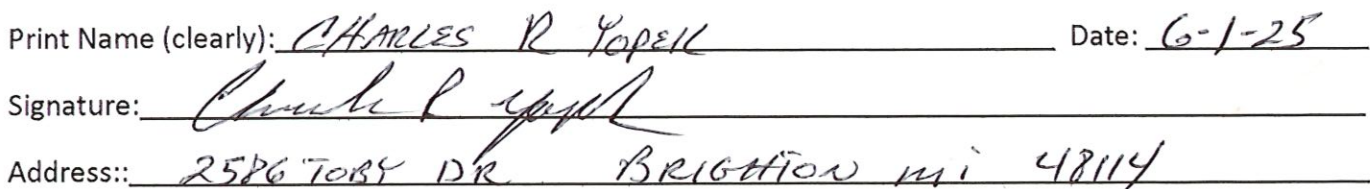 Print Name (clearly): CHARLES R YOPEK Date: 6-1-25
Signature: Charles R Yopek
Address:: 2586 TOBY DR BRIGHTON mi 48114